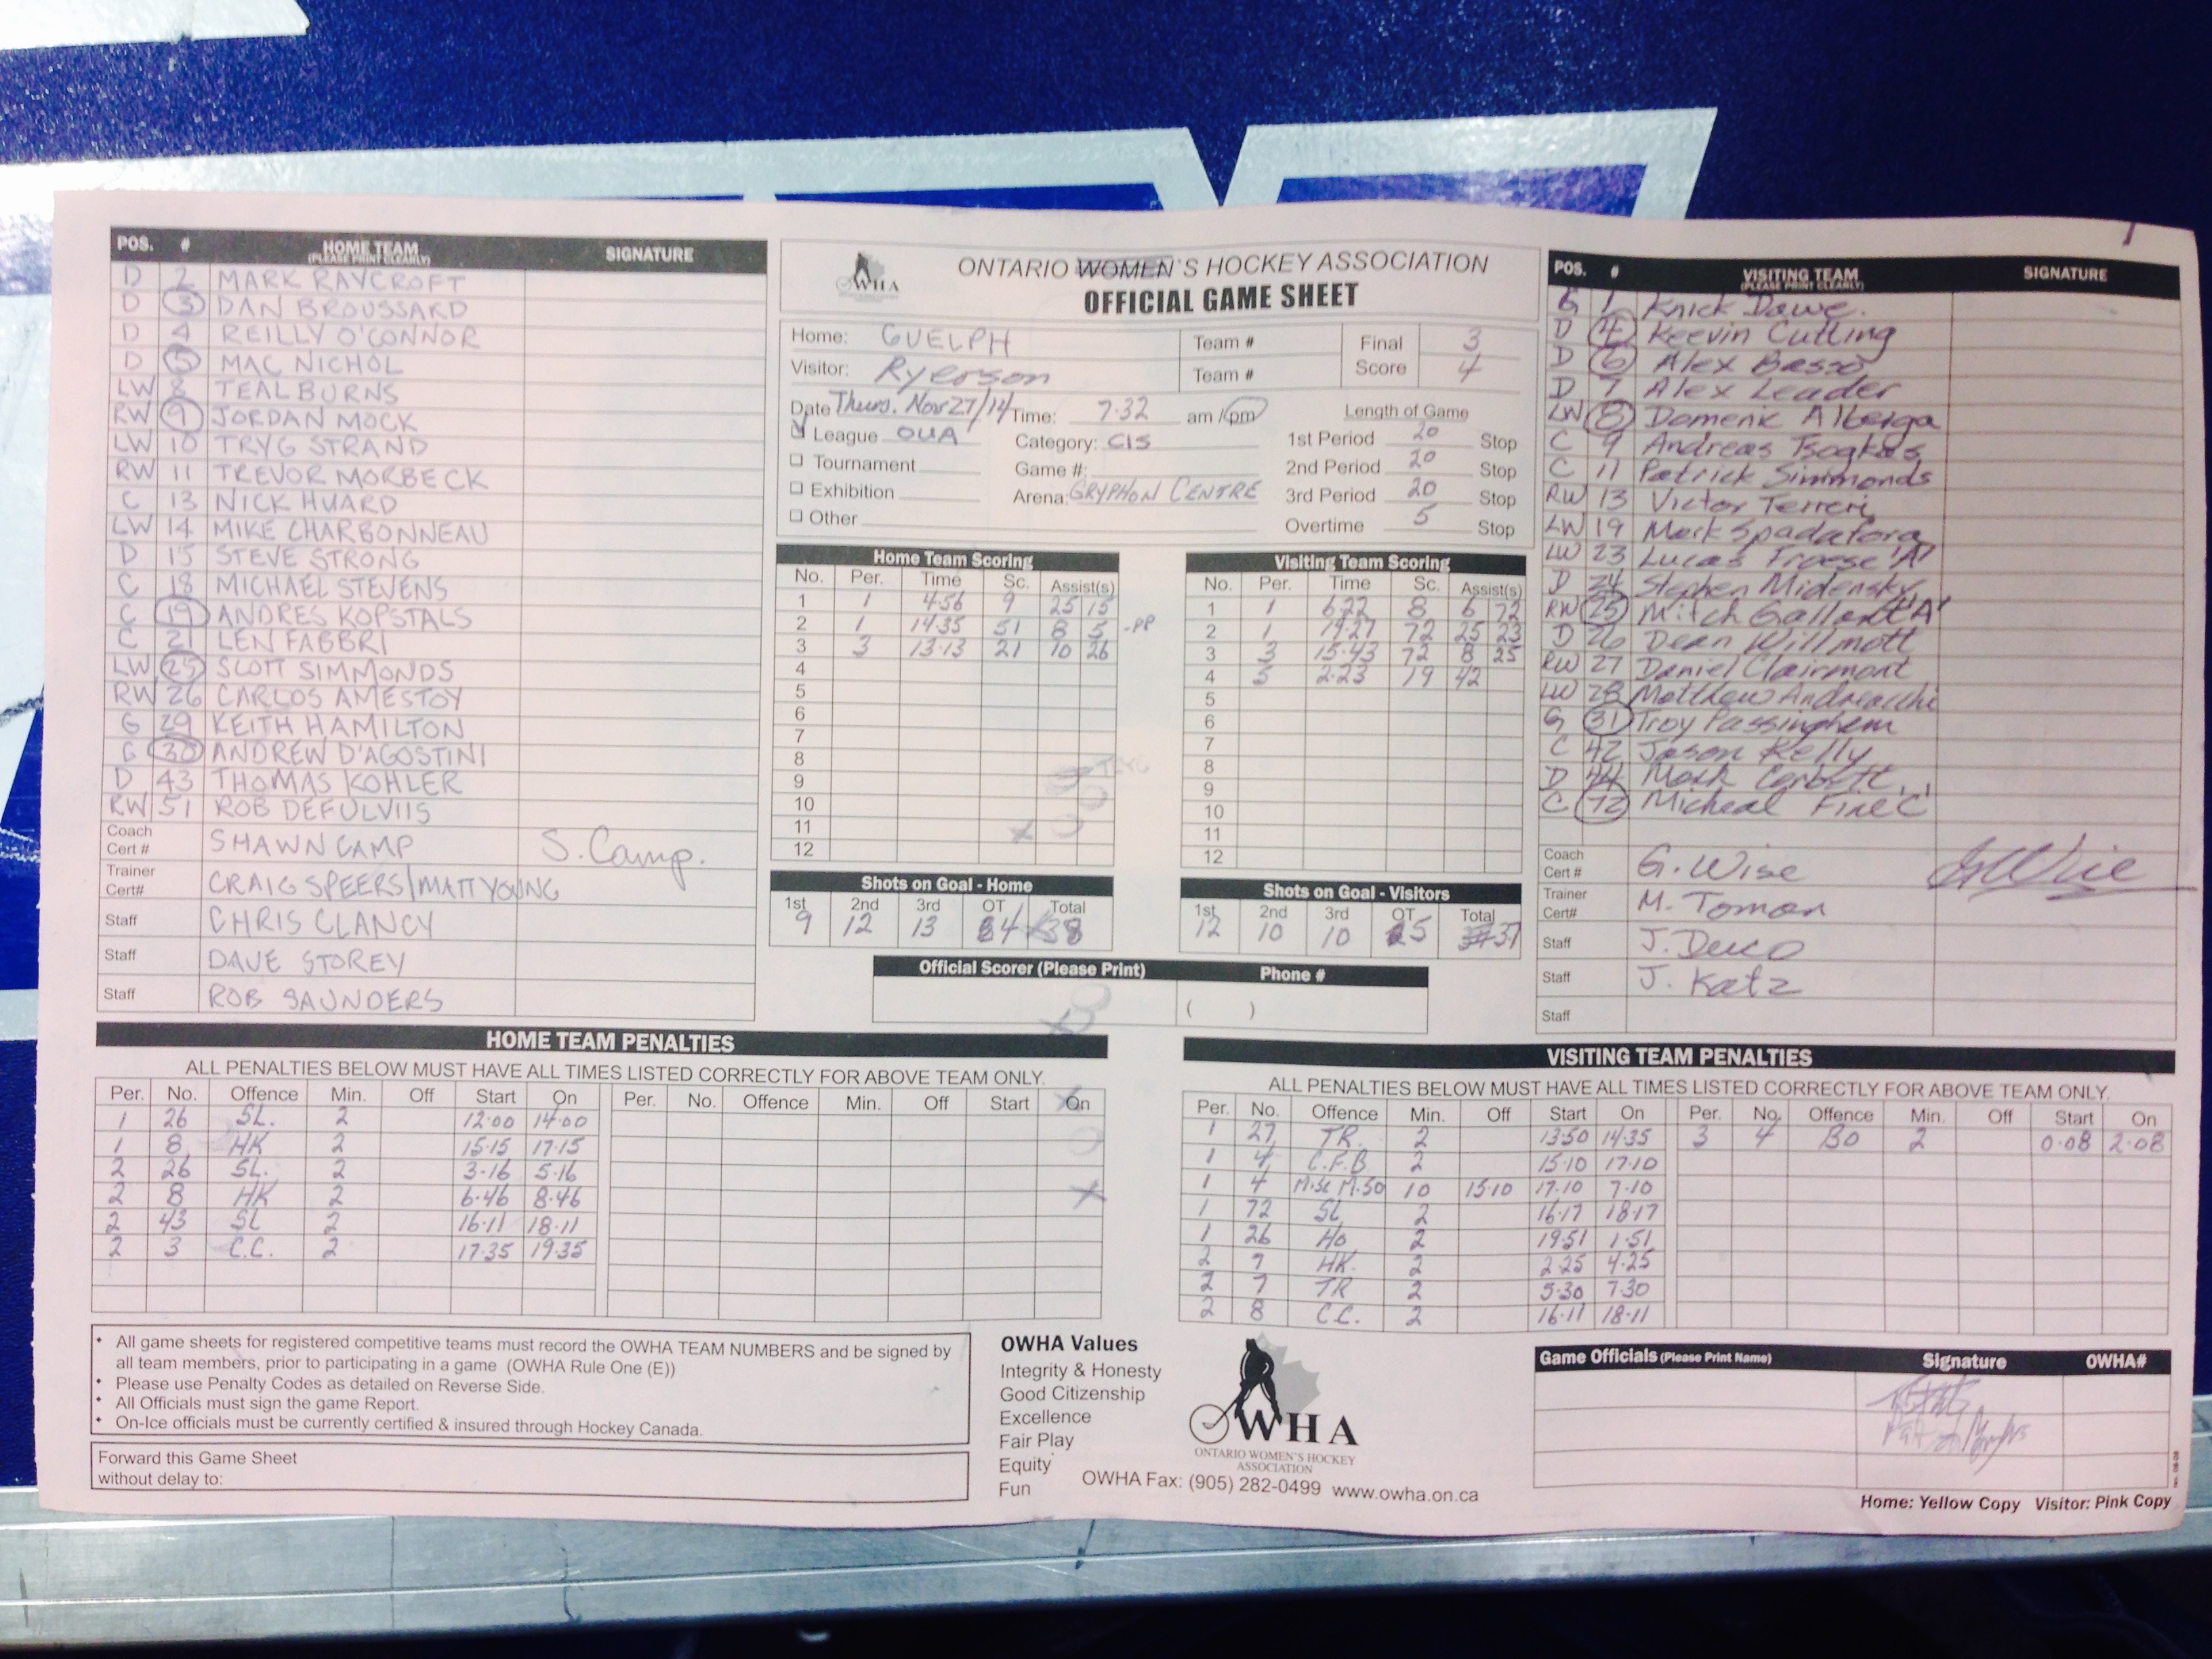 POS. # HOME TEAM (PLEASE PRINT CLEARLY) SIGNATURE
D 2 MARK RAYCROFT
D 3 DAN BROUSSARD
D 4 REILLY O'CONNOR
D 5 MAC NICHOL
LW 8 TEAL BURNS
RW 9 JORDAN MOCK
LW 10 TRYG STRAND
RW 11 TREVOR MORBECK
C 13 NICK HUARD
LW 14 MIKE CHARBONNEAU
D 15 STEVE STRONG
C 18 MICHAEL STEVENS
C 19 ANDRES KOPSTALS
C 21 LEN FABBRI
LW 25 SCOTT SIMMONDS
RW 26 CARLOS AMESTOY
G 29 KEITH HAMILTON
G 30 ANDREW D'AGOSTINI
D 43 THOMAS KOHLER
RW 51 ROB DEFULVIIS
Coach Cert # SHAWN CAMP S. Camp.
Trainer Cert# CRAIG SPEERS/MATT YOUNG
Staff CHRIS CLANCY
Staff DAVE STOREY
Staff ROB SAUNDERS
OWHA
ONTARIO WOMEN'S HOCKEY ASSOCIATION
OFFICIAL GAME SHEET
Home: GUELPH Team # Final 3
Visitor: Ryerson Team # Score 4
Date Thurs. Nov 27/14 Time: 7:32 am / pm Length of Game
League OUA Category: CIS 1st Period 20 Stop
Tournament Game #: 2nd Period 20 Stop
Exhibition Arena: GRYPHON CENTRE 3rd Period 20 Stop
Other Overtime 5 Stop
Home Team Scoring
No. Per. Time Sc. Assist(s)
1 1 4:56 9 25 15
2 1 14:35 51 8 5 -PP
3 3 13:13 21 10 26
4
5
6
7
8
9
10
11
12
Visiting Team Scoring
No. Per. Time Sc. Assist(s)
1 1 6:22 8 6 72
2 1 19:27 72 25 23
3 3 15:43 72 8 25
4 5 2:23 19 42
5
6
7
8
9
10
11
12
Shots on Goal - Home
1st 2nd 3rd OT Total
9 12 13 4 38
Shots on Goal - Visitors
1st 2nd 3rd OT Total
12 10 10 5 37
Official Scorer (Please Print) Phone #
( )
POS. # VISITING TEAM (PLEASE PRINT CLEARLY) SIGNATURE
G 1 Knick Dawe.
D 4 Keevin Cutting
D 6 Alex Basso
D 7 Alex Leader
LW 8 Domenic Alberga
C 9 Andreas Tsogkas
C 11 Patrick Simmonds
RW 13 Victor Terreri
LW 19 Mark Spadafora
LW 23 Lucas Froese 'A'
D 24 Stephen Midensky
RW 25 Mitch Gallant 'A'
D 26 Dean Willmott
RW 27 Daniel Clairmont
LW 28 Matthew Andreacchi
G 31 Troy Passingham
C 42 Jason Kelly
D 44 Mark Corbett
C 72 Micheal Fine 'C'
Coach Cert # G. Wise G Wise
Trainer Cert# M. Toman
Staff J. Duco
Staff J. Katz
Staff
HOME TEAM PENALTIES
ALL PENALTIES BELOW MUST HAVE ALL TIMES LISTED CORRECTLY FOR ABOVE TEAM ONLY.
Per. No. Offence Min. Off Start On Per. No. Offence Min. Off Start On
1 26 SL. 2 12:00 14:00
1 8 HK 2 15:15 17:15
2 26 SL. 2 3:16 5:16
2 8 HK 2 6:46 8:46
2 43 SL 2 16:11 18:11
2 3 C.C. 2 17:35 19:35
VISITING TEAM PENALTIES
ALL PENALTIES BELOW MUST HAVE ALL TIMES LISTED CORRECTLY FOR ABOVE TEAM ONLY.
Per. No. Offence Min. Off Start On Per. No. Offence Min. Off Start On
1 27 TR. 2 13:50 14:35 3 4 BO 2 0:08 2:08
1 4 C.F.B 2 15:10 17:10
1 4 Misc M.50 10 15:10 17:10 7:10
1 72 SL 2 16:17 18:17
1 26 Ho 2 19:51 1:51
2 7 HK. 2 2:25 4:25
2 7 TR 2 5:30 7:30
2 8 C.C. 2 16:11 18:11
• All game sheets for registered competitive teams must record the OWHA TEAM NUMBERS and be signed by
all team members, prior to participating in a game (OWHA Rule One (E))
• Please use Penalty Codes as detailed on Reverse Side.
• All Officials must sign the game Report.
• On-Ice officials must be currently certified & insured through Hockey Canada.
Forward this Game Sheet
without delay to:
OWHA Values
Integrity & Honesty
Good Citizenship
Excellence
Fair Play
Equity
Fun
OWHA
ONTARIO WOMEN'S HOCKEY
ASSOCIATION
OWHA Fax: (905) 282-0499 www.owha.on.ca
Game Officials (Please Print Name) Signature OWHA#
Home: Yellow Copy Visitor: Pink Copy